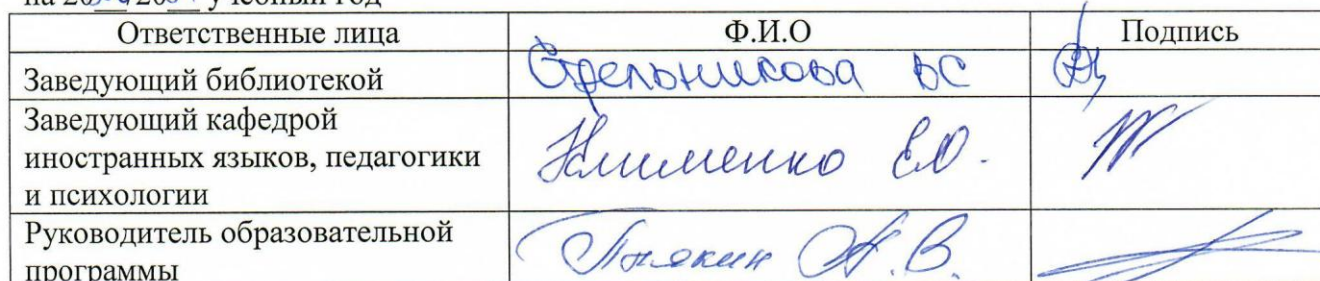 на 20 20 учебный год
Ответственные лица Ф.И.О Подпись
Заведующий библиотекой Стрельникова ВС
Заведующий кафедрой
иностранных языков, педагогики
и психологии Клименко Е.О.
Руководитель образовательной
программы В.